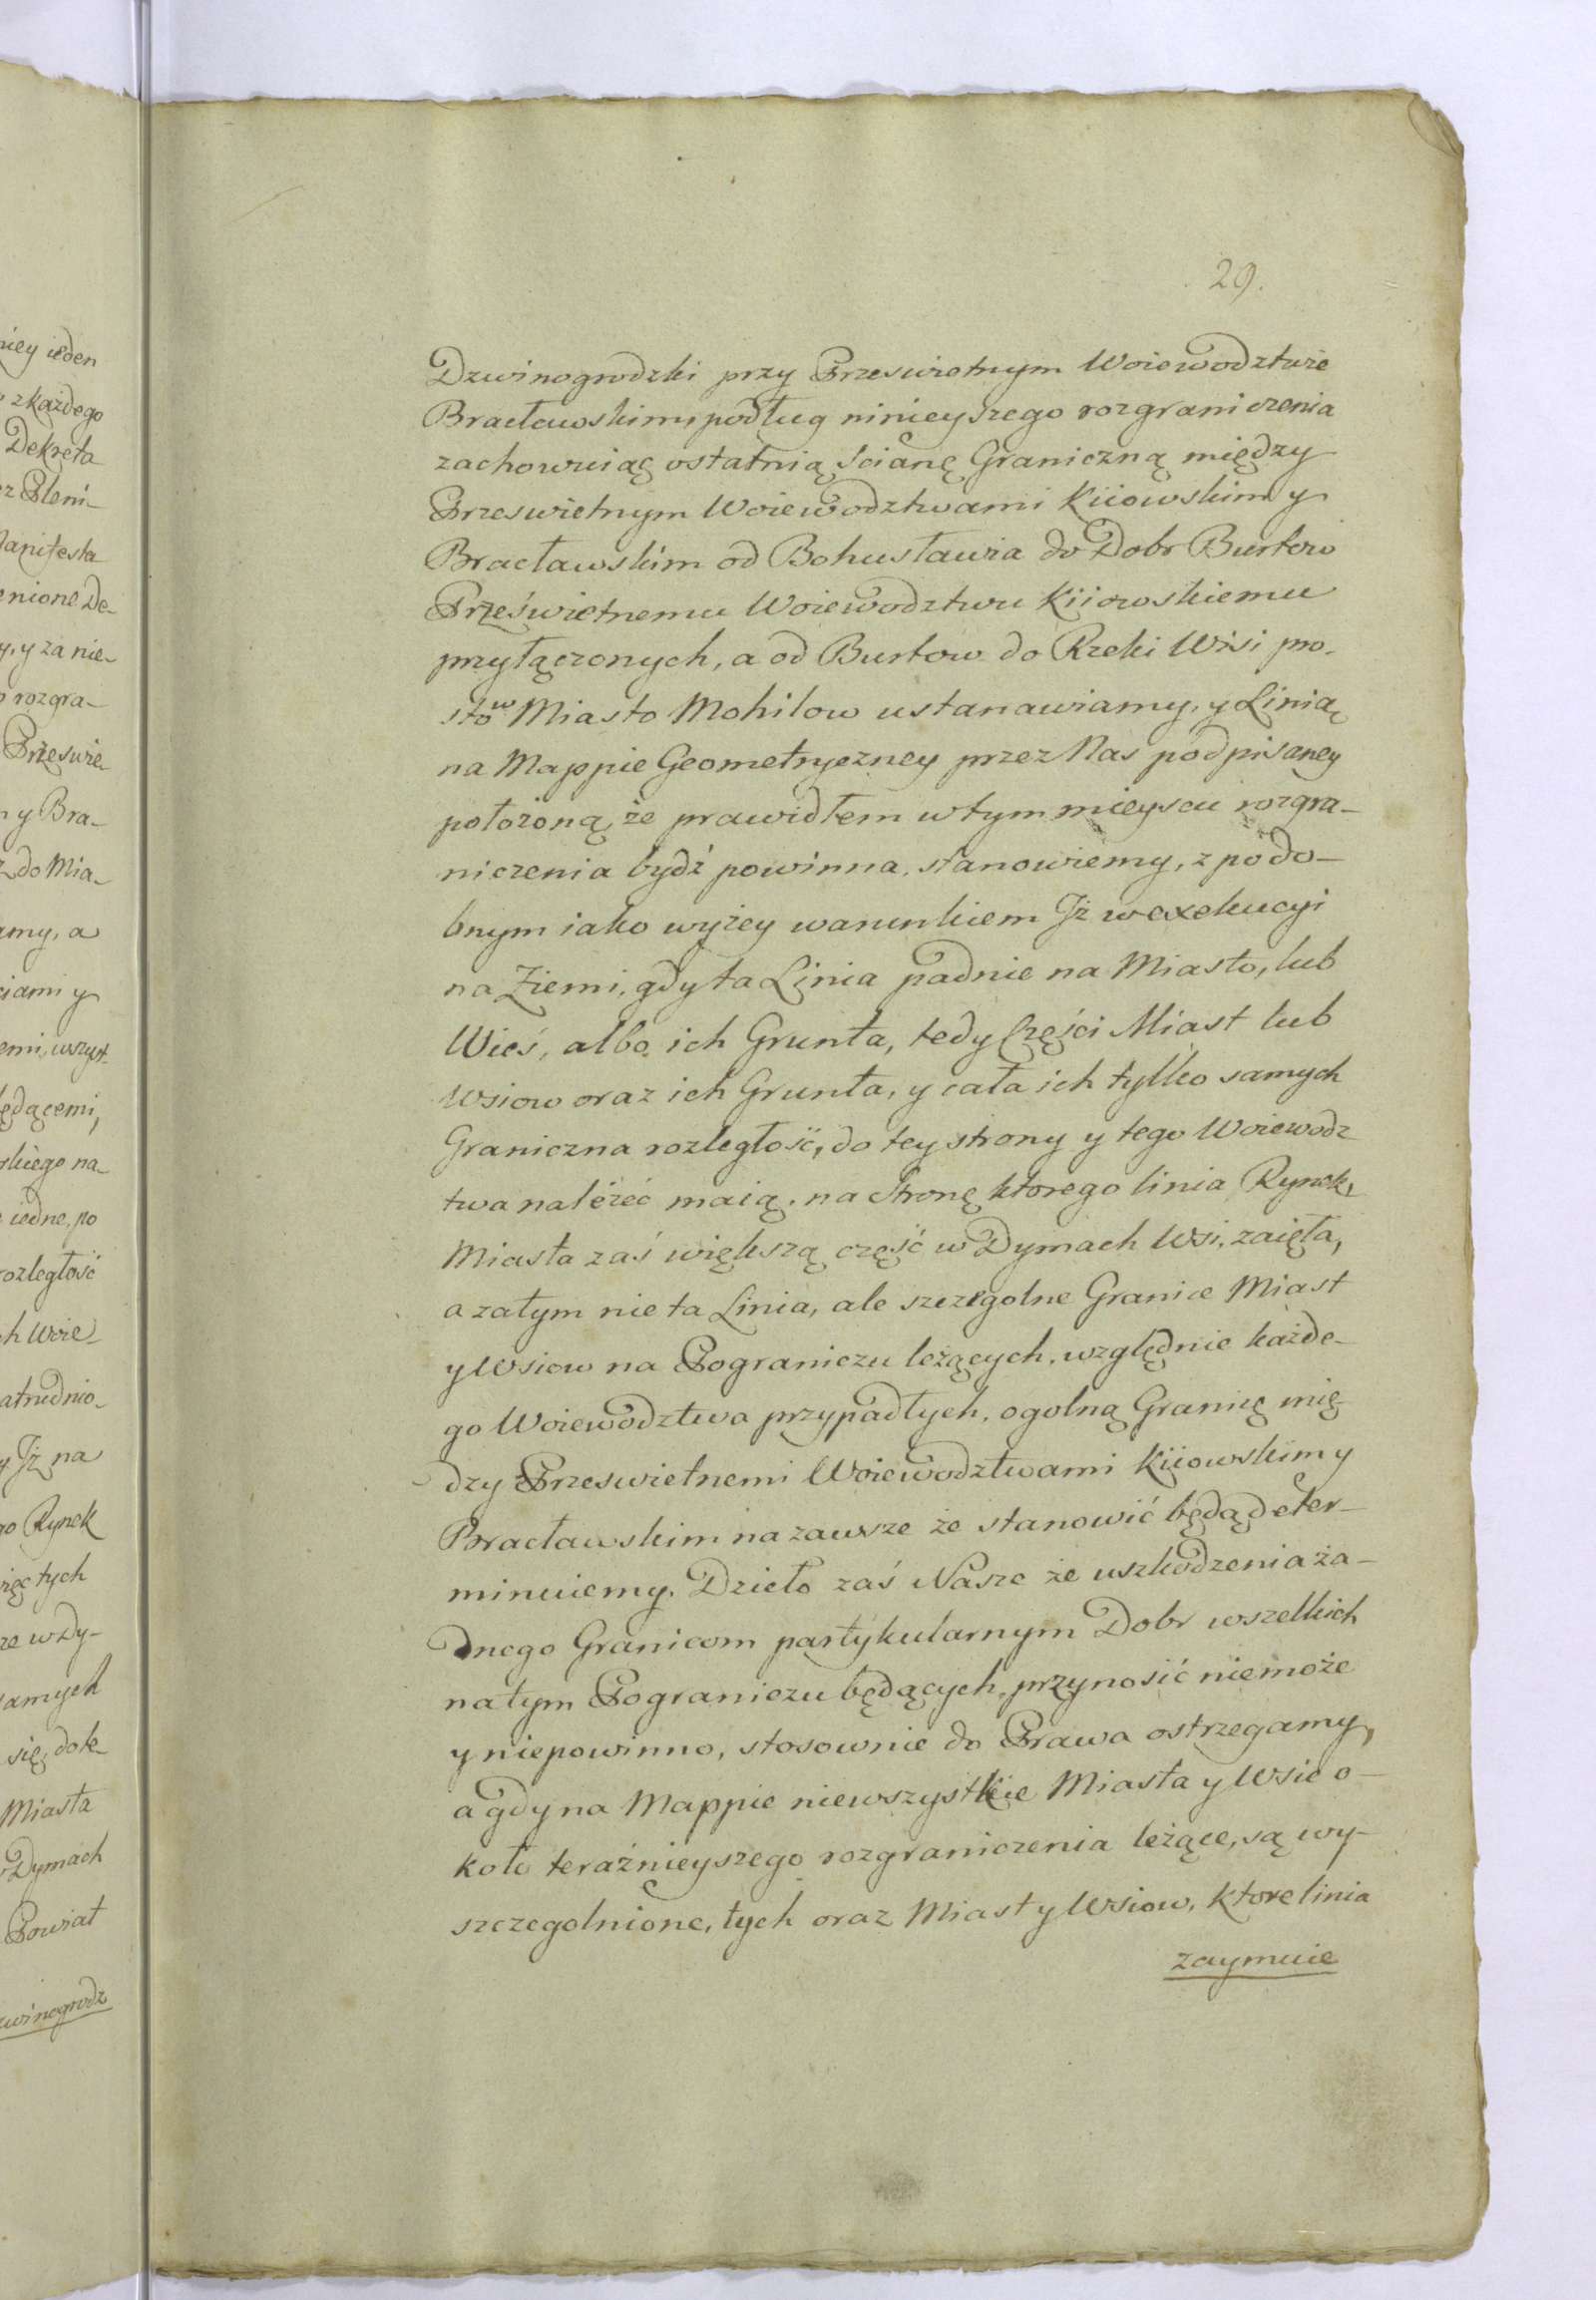 29.
Dzwinogrodzki przy Przeswietnym Woiewodztwie
Bracławskim, podług ninieyszego rozgraniczenia
zachowuiąc ostatnią Scianę Graniczną między
Przeswietnym Woiewodztwami Kiiowskim y
Bracławskim od Bohusławia do Dobr Burtow
Prześwietnemu Woiewodztwu Kiiowskiemu
przyłączonych, a od Burtow do Rzeki Wsi pro-
sto w Miasto Mohilow ustanawiamy, y Linią
na Mappie Geometryczney przez Nas podpisaney
położoną, że prawidłem w tym mieyscu rozgra-
niczenia bydź powinna, stanowiemy, z podo-
bnym iako wyżey warunkiem Jż w exekucyi
na Ziemi, gdy ta Linia padnie na Miasto, lub
Wieś, albo ich Grunta, tedy Części Miast lub
Wsiow oraz ich Grunta, y cała ich tylko samych
Graniczna rozległość, do tey strony y tego Woiewodz
twa należeć maią, na stronę ktorego linia Rynek,
Miasta zaś większą część w Dymach Wsi, zaięła,
a zatym nie ta Linia, ale szczegolne Granice Miast
y Wsiow na Pograniczu leżących, względnie każde-
go Woiewodztwa przypadłych, ogolną Granicę mię
dzy Przeswietnemi Woiewodztwami Kiiowskim y
Bracławskim na zawsze że stanowić będą deter-
minuiemy. Dzieło zaś Nasze że uszkodzenia ża-
dnego Granicom partykularnym Dobr wszelkich
na tym Pograniczu będących, przynosić niemoże
y niepowinno, stosownie do Prawa ostrzegamy,
a gdy na Mappie niewszystkie Miasta y Wsie o-
koło teraźnieyszego rozgraniczenia leżące, są wy-
szczegolnione, tych oraz Miast y Wsiow, ktore linia
zaymuie
niey ieden
zkażdego
Dekreta
Pleni-
nione De-
y, y za nie-
rozgra-
Przeswie-
y Bra-
do Mia-
amy, a
ciami y
emi, wszyst-
będącemi,
skiego na-
iedne, po
rozległość
ch Woie-
atrudnio-
Jż na
go Rynek
więc tych
ze w Dy-
samych
się, dote-
Miasta
w Dymach
Powiat
zwinogrodz